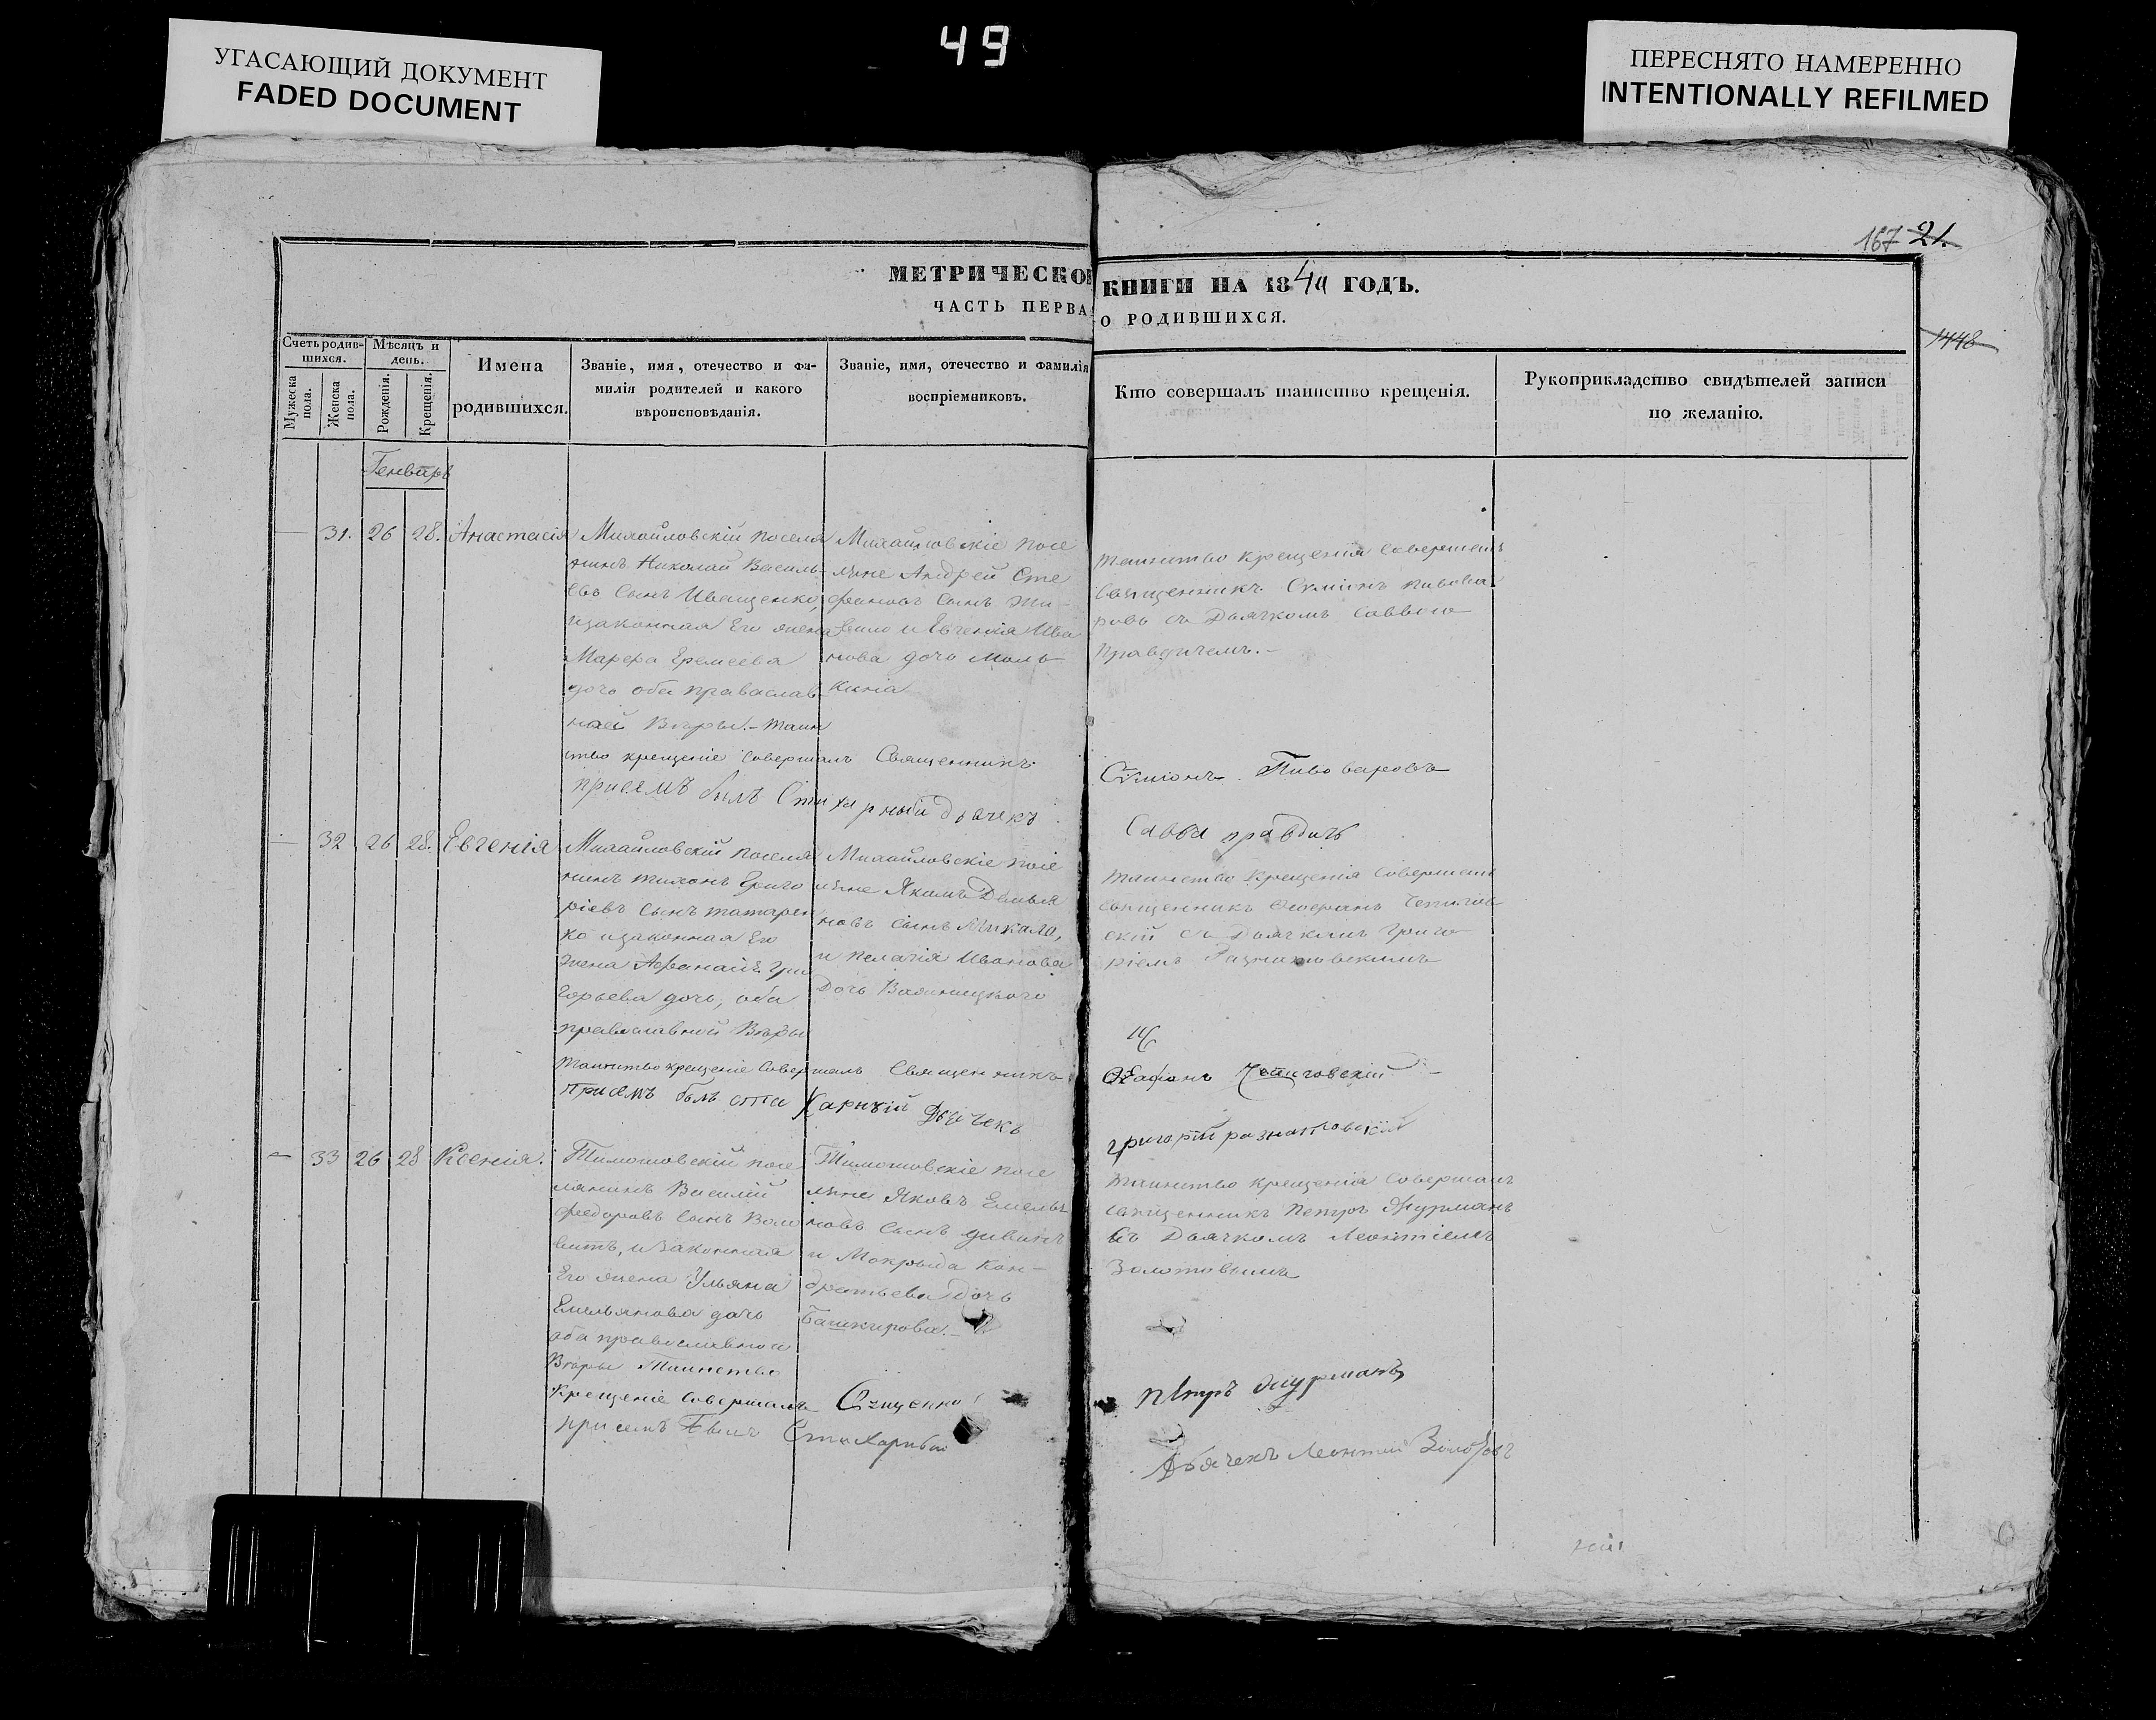 49
УГАСАЮЩИЙ ДОКУМЕНТ
FADED DOCUMENT
ПЕРЕСНЯТО НАМЕРЕННО
INTENTIONALLY REFILMED
167 21.
1448
МЕТРИЧЕСКОЙ КНИГИ НА 1844 ГОДЪ.
ЧАСТЬ ПЕРВА О РОДИВШИХСЯ.
Счетъ родившихся.
Мужеска пола.
Женска пола.
Мѣсяцъ и день.
Рожденія.
Крещенія.
Имена
родившихся.
Званіе, имя, отечество и фа-
милія родителей и какого
вѣроисповѣданія.
Званіе, имя, отечество и фамилія
воспріемниковъ.
Кто совершалъ таинство крещенія.
Рукоприкладство свидѣтелей записи
по желанію.
Генваръ
31. 26 28. Анастасія
Михайловскій поселя
нинъ Николай Василь-
евъ сынъ Иващенко,
и законная Его жена
Марфа Еремеева
дочь оба православ-
ной Вѣры.- Таин
ство крещеніе совершалъ Священникъ
присемъ былъ Стихарный дьячекъ
Михайловскіе посе
ляне Андрей Сте
фановъ сынъ
и Евгенія Ива
нова дочь
Таинство крещенія совершалъ
священникъ Сѵміонъ Пивова
ровъ съ Дьячкомъ Саввою
Правдичемъ.-
Сѵміонъ Пивоваровъ
Савва правдичъ
32 26 28. Евгенія
Михайловскій поселя
нинъ Тихонъ Григо
ріевъ сынъ татарен
ко и законная Его
жена
горьева дочь, оба
православной Вѣры
Таинство крещеніе совершалъ Священникъ
Присемъ былъ стихарный Дьячекъ
Михайловскіе посе
ляне Якимъ Демья
новъ сынъ Микало,
и Пелагія Иванова
Дочь
Таинство крещенія совершалъ
священникъ
скій съ Дьячкомъ Григо
ріемъ
григорій
33 26 28 Ксенія.
Тимошовскій посе
лянинъ Василій
Федоровъ сынъ
и законная
Его жена Ульяна
Емельянова дочь
оба православной
Вѣры Таинство
Крещеніе совершалъ
присемъ былъ Стихарный
Тимошовскіе посе
ляне Яковъ Емелья
новъ сынъ
и Мокрыда Кон-
дратьева Дочь
Башкирова.-
Таинство крещенія совершалъ
священникъ Петръ Журманъ
съ Дьячкомъ Леонтіемъ
Золотовымъ
Петръ Журманъ
Дьячекъ Леонтий Золотовъ